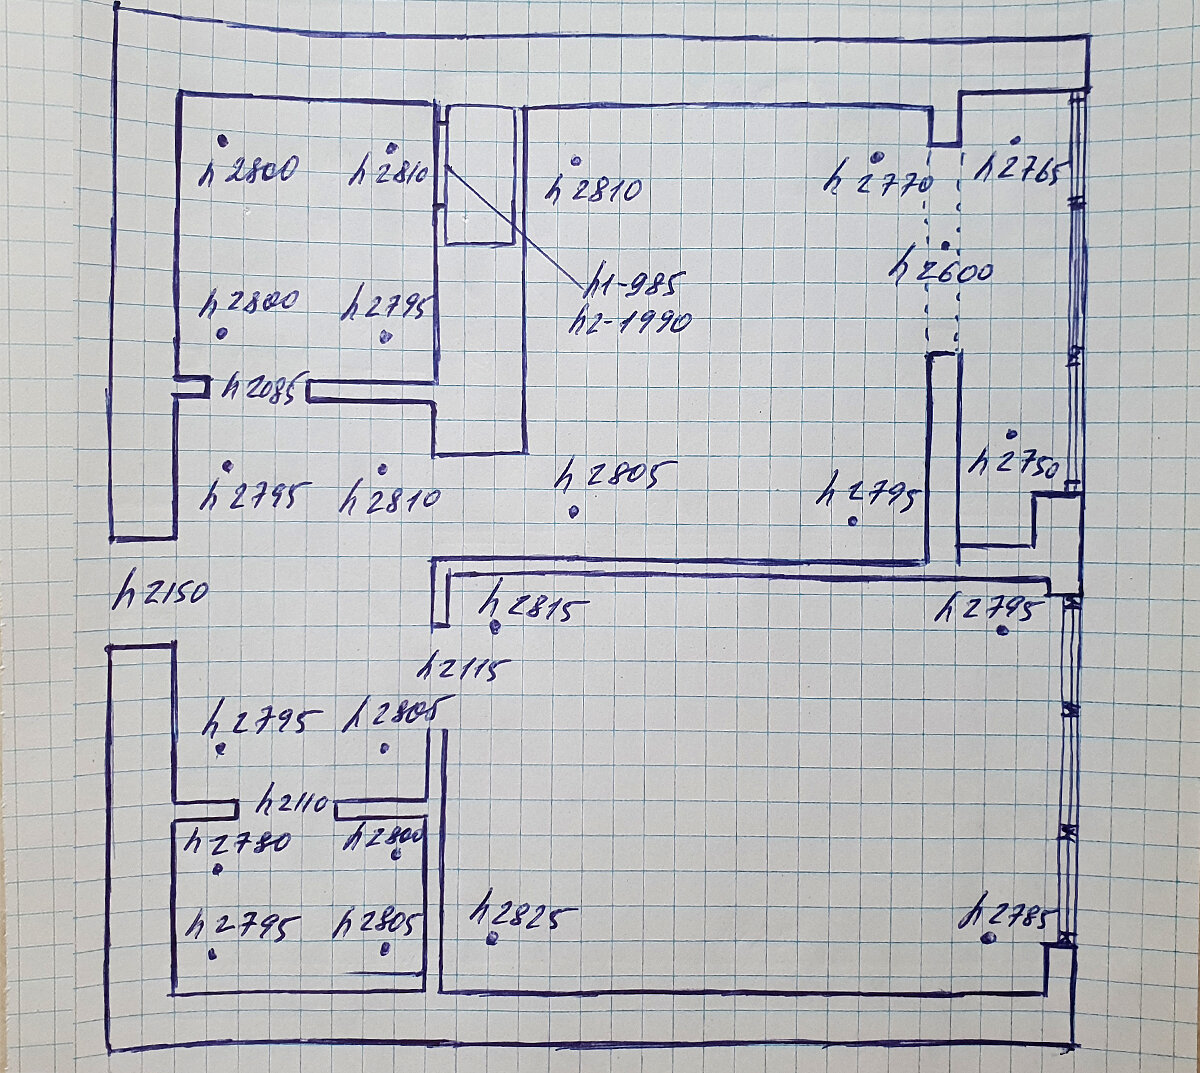 h2800
h2810
h2810
h2770
h2765
h2600
h2800
h2795
h1-985
h2-1990
h2085
h2795
h2810
h2805
h2795
h2750
h2150
h2815
h2795
h2115
h2795
h2805
h2110
h2780
h2800
h2795
h2805
h2825
h2785